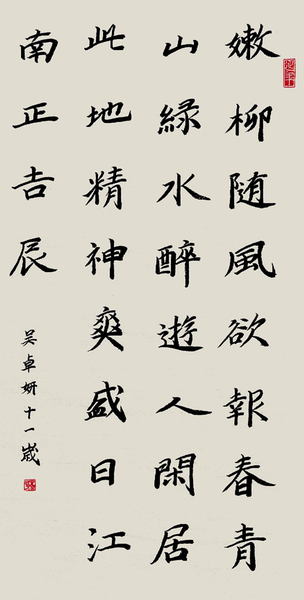 嫩柳随風欲報春青
山緑水醉遊人閑居
此地精神爽盛日江
南正吉辰
吴卓妍十一歲